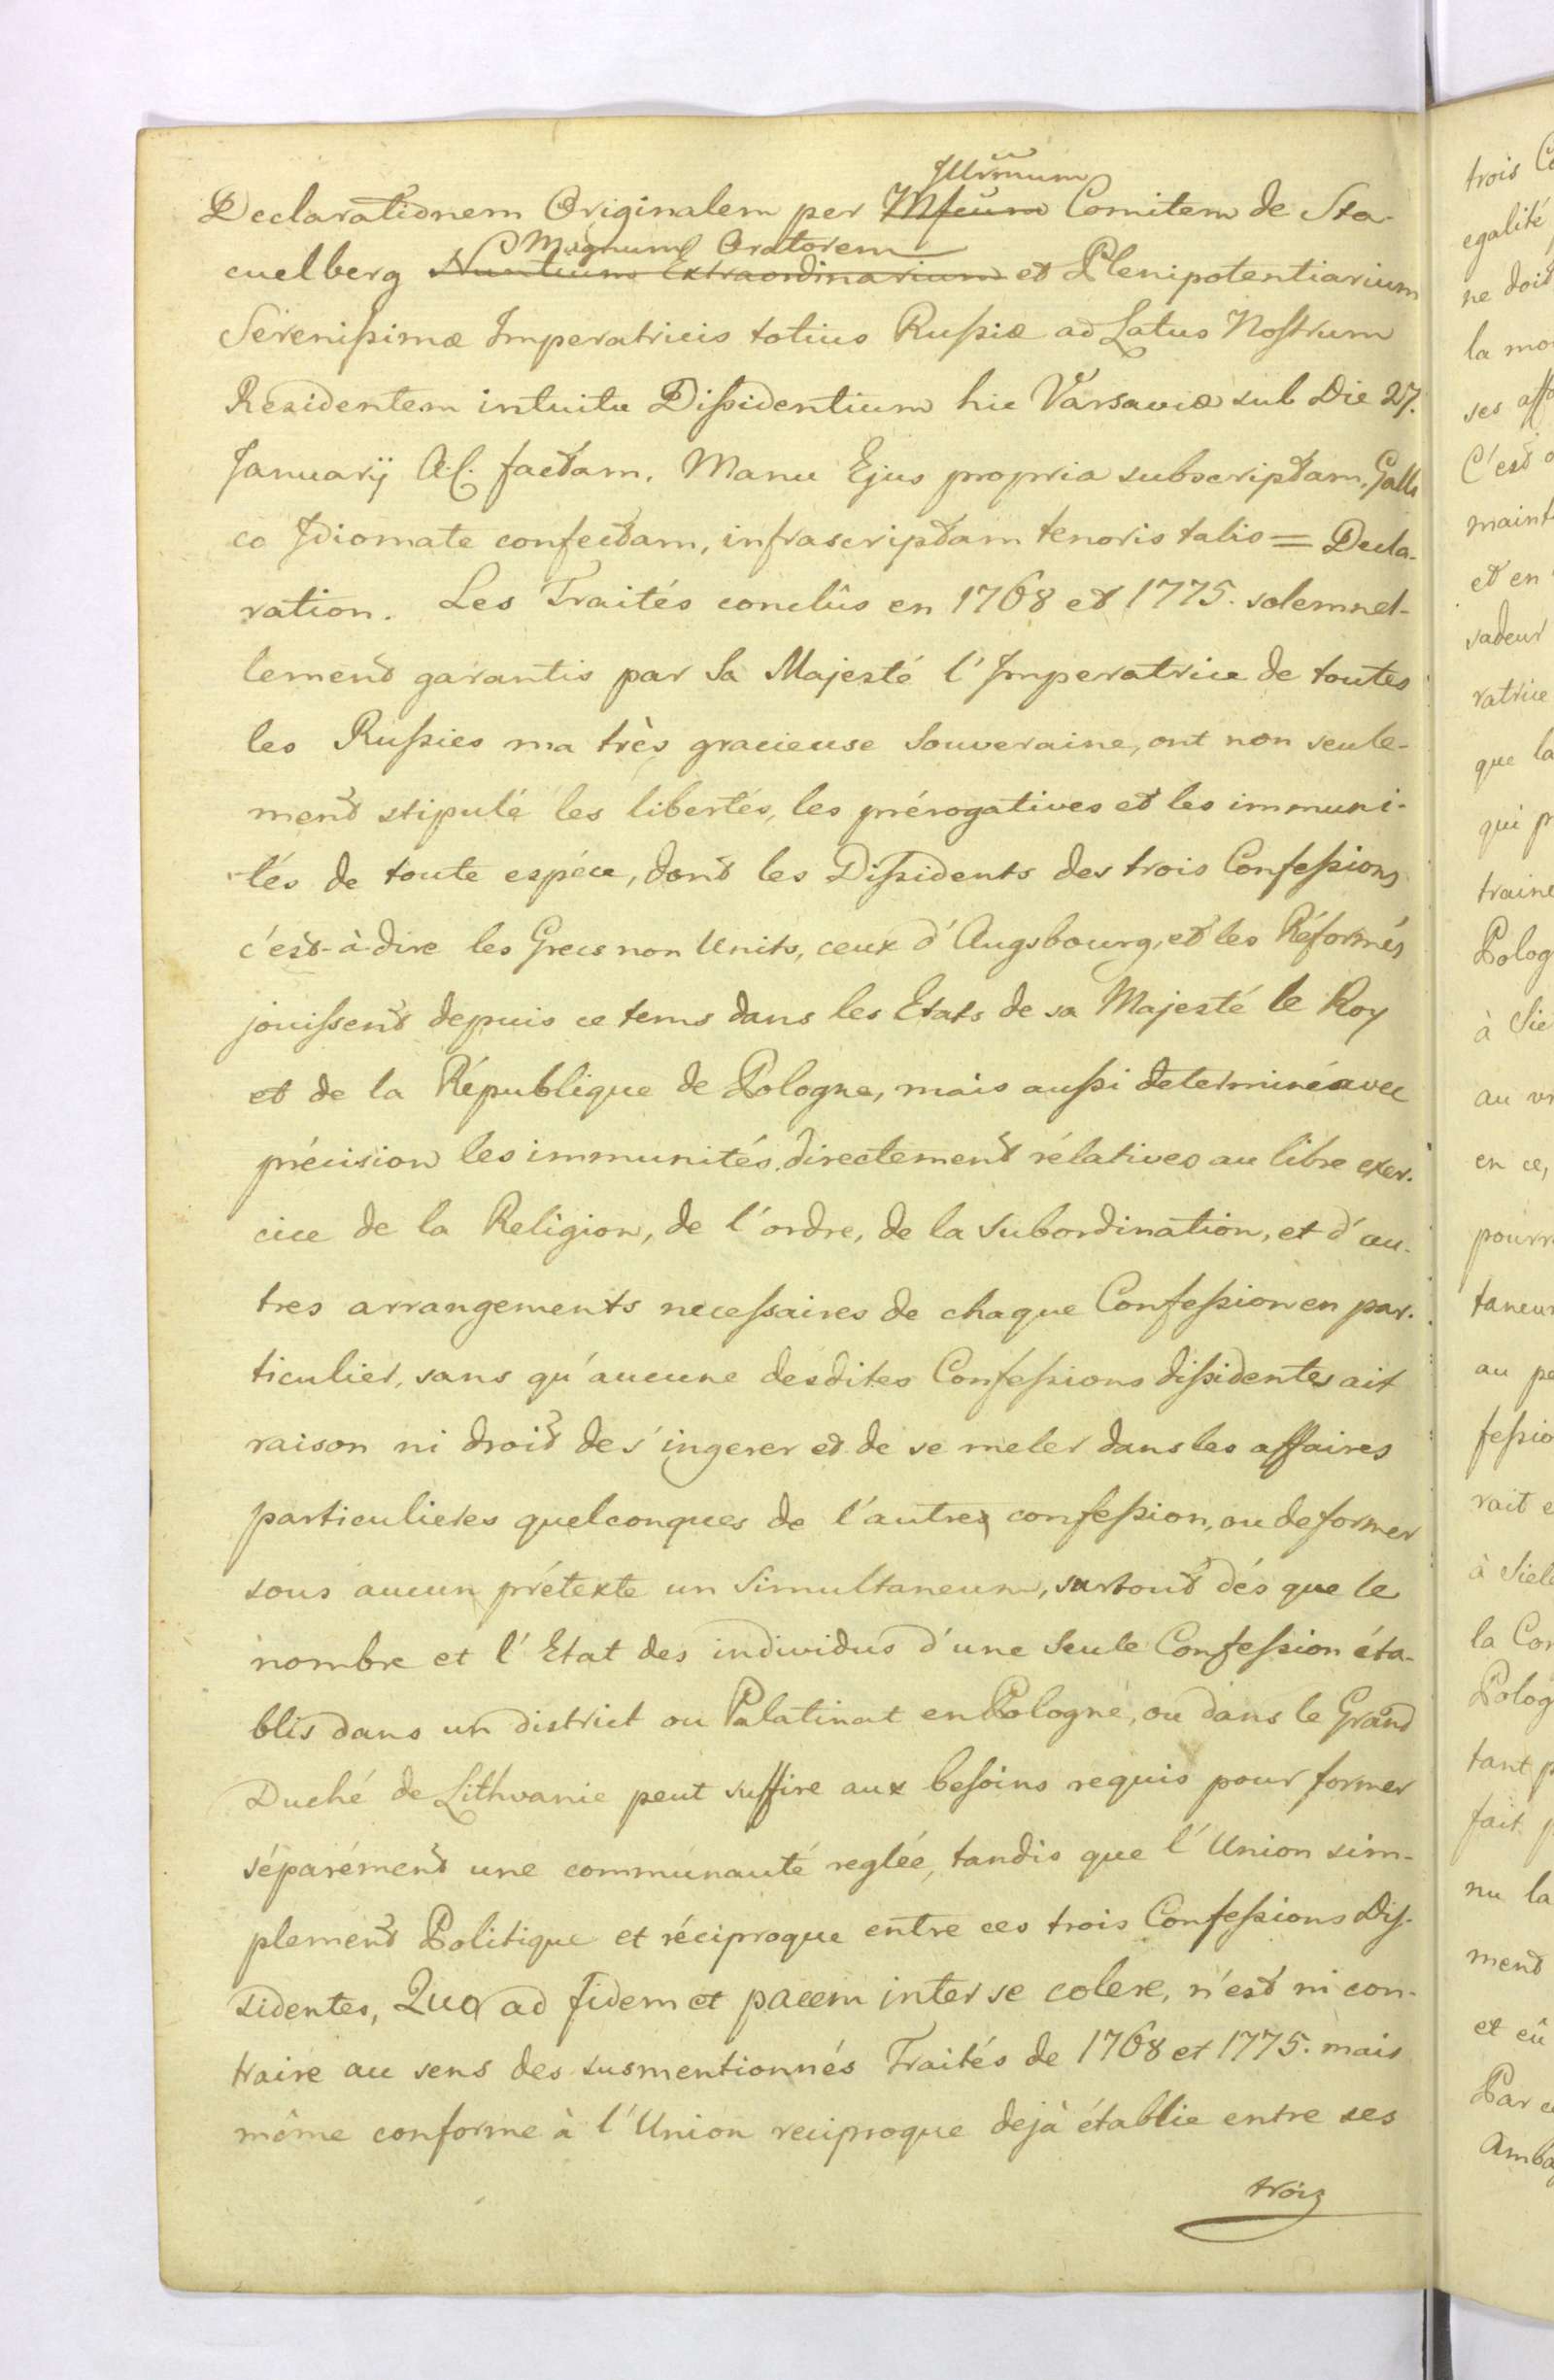 Illrmum
Declarationem Originalem per Mfcum Comitem de Sta-
Magnum Oratorem
cuelberg Nuntium Extraordinarium et Plenipotentiarium
Serenissimæ Imperatricis totius Russiæ ad Latus Nostrum
Residentem intuitu Dissidentium hic Varsaviæ sub Die 27.
Januarij A.C. factam. Manu Ejus propria subscriptam, Galli
co Idiomate confectam, infrascriptam tenoris talis = Decla-
ration. Les Traités conclûs en 1768 et 1775. solemnel-
lement garantis par Sa Majesté l'Imperatrice de toutes
les Russies ma très gracieuse Souveraine, ont non seule-
ment stipulé les libertés, les prérogatives et les immuni-
tés de toute espéce, dont les Dissidents des trois Confessions
c'est-à-dire les Grecs non Units, ceux d'Augsbourg, et les Réformés
jouissent depuis ce tems dans les Etats de sa Majesté le Roy
et de la République de Pologne, mais aussi determiné avec
précision les immunités directement rélatives au libre exer-
cice de la Religion, de l'ordre, de la subordination, et d'au-
tres arrangements necessaires de chaque Confession en par-
ticulier, sans qu'aucune desdites Confessions dissidentes ait
raison ni droit de s'ingerer et de se meler dans les affaires
particulieres quelconques de l'autre confession, ou de former
sous aucun prétexte un Simultaneum, surtout dés que le
nombre et l'Etat des individus d'une Seule Confession éta-
blis dans un district ou Palatinat en Pologne, ou dans le Grand
Duché de Lithvanie peut suffire aux besoins requis pour former
séparément une communauté reglée, tandis que l'Union sim-
plement Politique et réciproque entre ces trois Confessions Dis-
sidentes, Quo ad fidem et pacem inter se colere, n'est ni con-
traire au sens des susmentionnés Traités de 1768 et 1775. mais
même conforme à l'Union reciproque dejà établie entre ses
trois
trois
egalité
ne doit
la mo
ses aff
C'est
maint
et en
sadeur
ratrice
que la
qui p
traine
Polog
à Sie
au
en ce,
pourr
taneu
au pe
fessio
rait
à Siel
la Con
Polog
tant p
fait
nu la
ment
et eû
Par
Amba